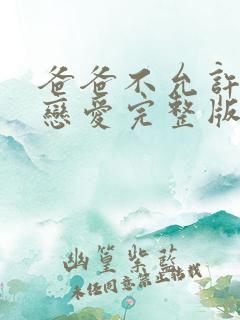 爸爸不允許
戀愛完整版
幽篁紫藍
未經同意禁止轉載